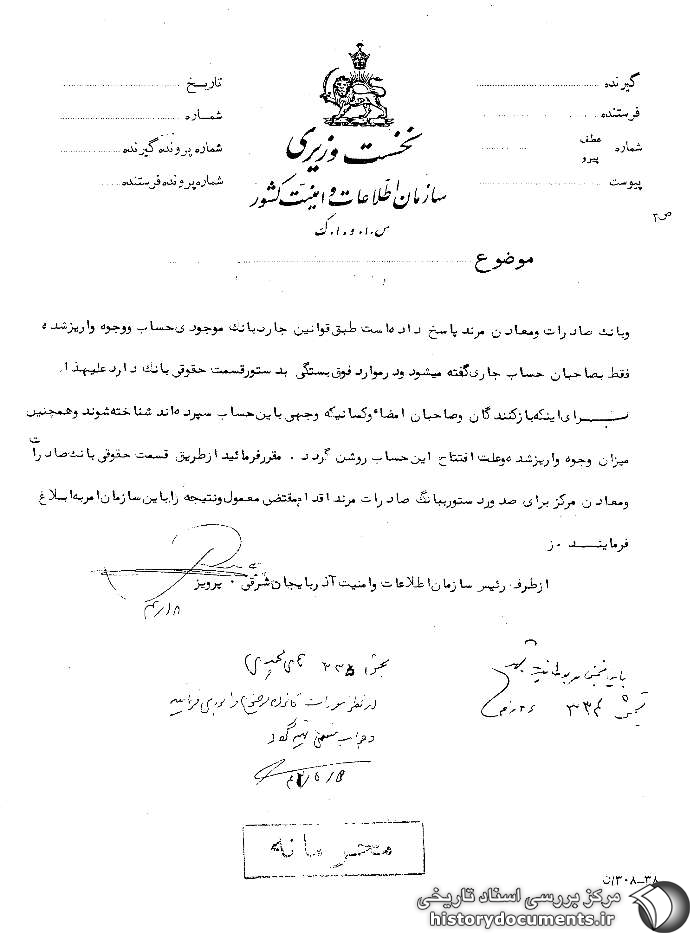 گیرنده
فرستنده
شماره عطف
پیرو
پیوست
نخست وزیری
سازمان اطلاعات و امنیت کشور
س.ا.و.ا.ک
تاریخ
شماره
شماره پرونده گیرنده
شماره پرونده فرستنده
ص۲
موضوع
وبانک صادرات ومعادن مرند پاسخ داده است طبق قوانین جاری بانک موجودی حساب ووجوه واریز شده
فقط بصاحبان حساب جاری گفته میشود ودر موارد فوق بستگی بدستور قسمت حقوقی بانک دارد علیهذا
برای اینکه بازکنندگان وصاحبان امضاء وکسانیکه وجهی باین حساب سپرده اند شناخته شوند وهمچنین
میزان وجوه واریز شده وعلت افتتاح این حساب روشن گردد . مقرر فرمائید از طریق قسمت حقوقی بانک صادرات
ومعادن مرکز برای صدور دستور ببانک صادرات مرند اقدام مقتضی معمول ونتیجه را باین سازمان امر به ابلاغ
فرمایند
از طرف رئیس سازمان اطلاعات وامنیت آذربایجان شرقی . پرویز
۴/۱۸
بخش ۳۳۴
بخش
محرمانه
۳۸-۳۰۸/ن
مرکز بررسی اسناد تاریخی
historydocuments.ir